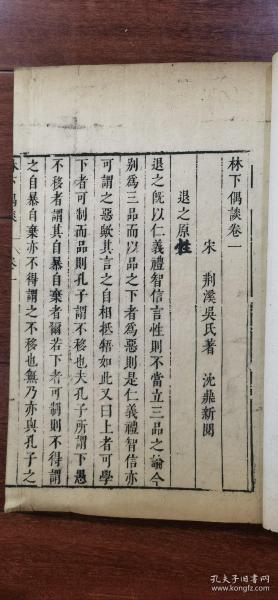 林下偶談卷一
宋 荆溪吳氏著 沈鼎新閱
退之原性
退之旣以仁義禮智信言性則不當立三品之論今
别爲三品而以品之下者爲惡則是仁義禮智信亦
可謂之惡歟其言之自相抵牾如此又曰上者可學
下者可制而品則孔子謂不移也夫孔子所謂下愚
不移者謂其自暴自棄者爾若下者可制則不得謂
之自暴自棄亦不得謂之不移也無乃亦與孔子之
林下偶談 卷一
孔夫子旧书网
kongfz.com